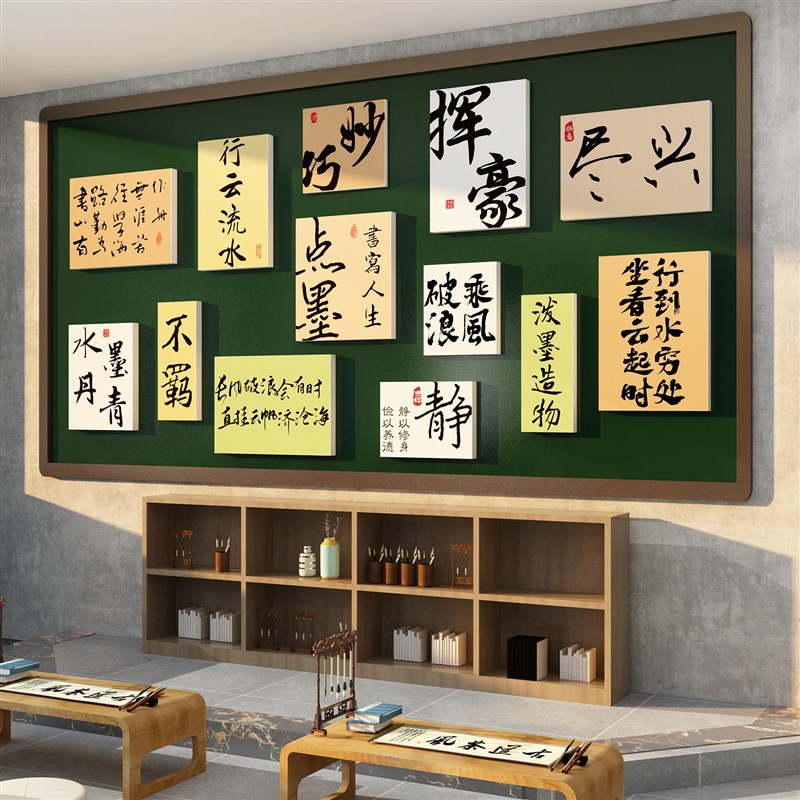 書山有
路勤為
径學海
無涯苦
作舟
行云流水
妙
挥豪
尽兴
点墨
書寫人生
乘風
破浪
行到水穷处
坐看云起时
水墨
丹青
不羁
长风破浪会有时
直挂云帆济沧海
静
静以修身
俭以养德
泼墨造物